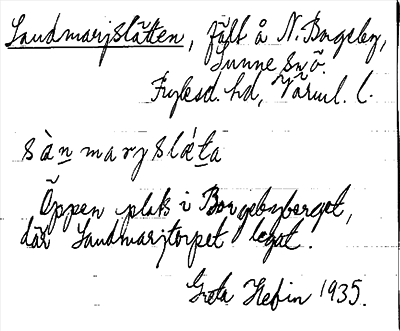 Sandmarjslätten, fält å N. Borgeby,
Sunne sn ö.
Fryksd. hd, Värml. l.
sànmarjslǽta
Öppen plats i Borgebyberget,
där Sandmarjtorpet legat.
Greta Hefin 1935.